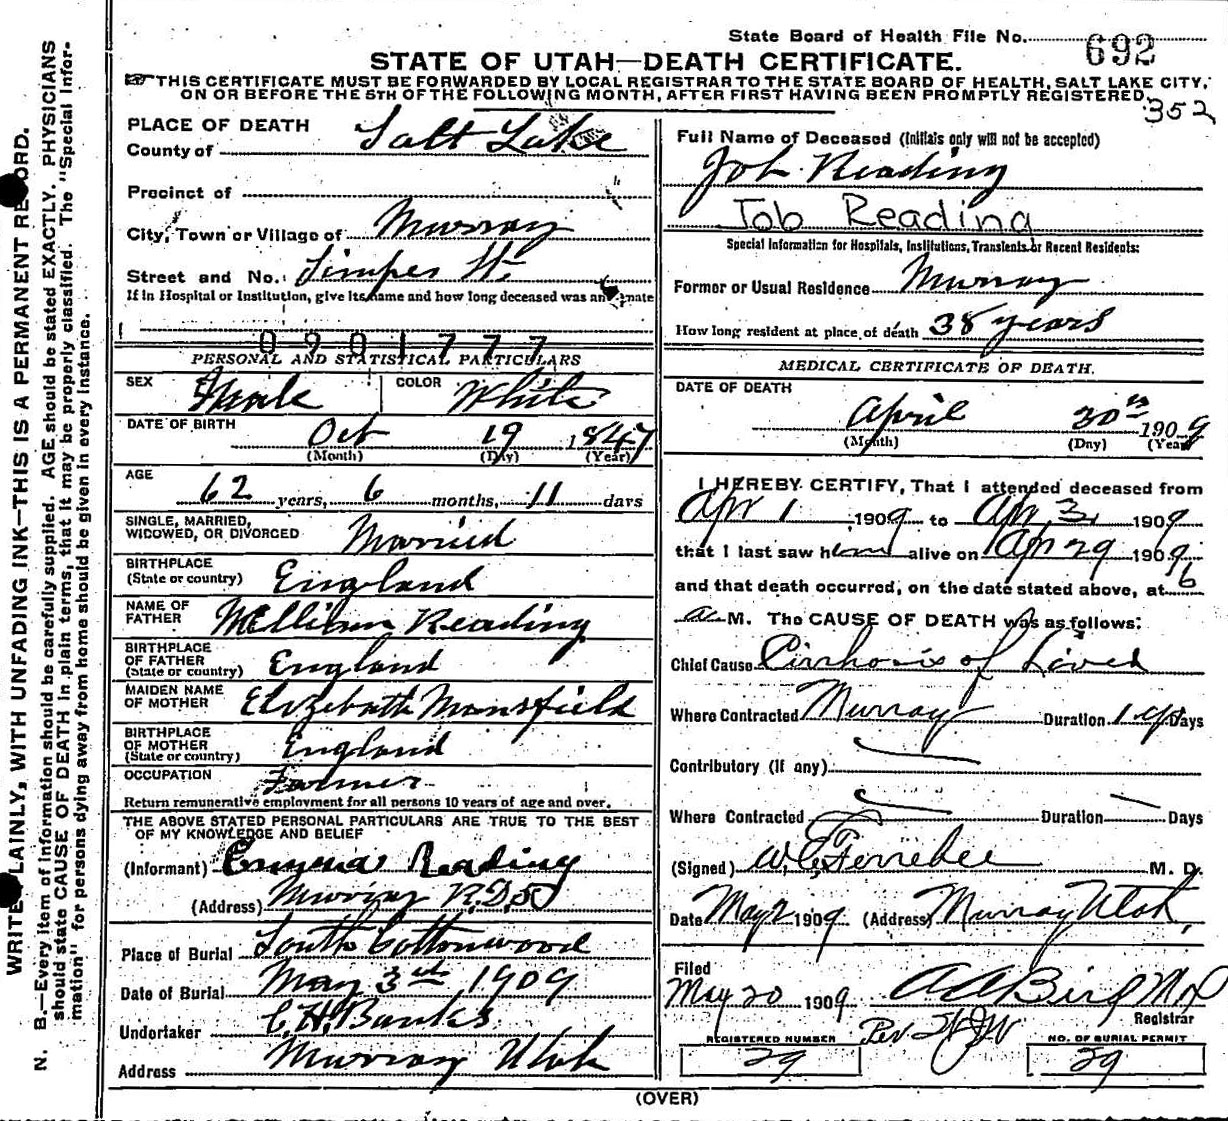 State Board of Health File No. 692
STATE OF UTAH—DEATH CERTIFICATE.
THIS CERTIFICATE MUST BE FORWARDED BY LOCAL REGISTRAR TO THE STATE BOARD OF HEALTH, SALT LAKE CITY,
ON OR BEFORE THE 5TH OF THE FOLLOWING MONTH, AFTER FIRST HAVING BEEN PROMPTLY REGISTERED.
352
PLACE OF DEATH
County of Salt Lake
Precinct of
City, Town or Village of Murray
Street and No.
If in Hospital or Institution, give its name and how long deceased was an inmate
0901777
PERSONAL AND STATISTICAL PARTICULARS
SEX Male COLOR White
DATE OF BIRTH Oct 19 1847
(Month) (Day) (Year)
AGE 62 years, 6 months, 11 days
SINGLE, MARRIED,
WIDOWED, OR DIVORCED Married
BIRTHPLACE
(State or country) England
NAME OF
FATHER Reading
BIRTHPLACE
OF FATHER
(State or country) England
MAIDEN NAME
OF MOTHER Elizabeth Mansfield
BIRTHPLACE
OF MOTHER
(State or country) England
OCCUPATION Farmer
Return remunerative employment for all persons 10 years of age and over.
THE ABOVE STATED PERSONAL PARTICULARS ARE TRUE TO THE BEST
OF MY KNOWLEDGE AND BELIEF
(Informant) Reading
(Address) Murray R.D.5
Place of Burial South Cottonwood
Date of Burial May 3rd, 1909
Undertaker C.H. Banks
Address Murray Utah
Full Name of Deceased (Initials only will not be accepted)
Job Reading
Job Reading
Special Information for Hospitals, Institutions, Transients or Recent Residents:
Former or Usual Residence Murray
How long resident at place of death 38 years
MEDICAL CERTIFICATE OF DEATH.
DATE OF DEATH
April 30th 1909
(Month) (Day) (Year)
I HEREBY CERTIFY, That I attended deceased from
Apr 1, 1909 to Apr 1909
that I last saw him alive on Apr 29 1909
and that death occurred, on the date stated above, at 6
a M. The CAUSE OF DEATH was as follows:
Chief Cause Cirrhosis of Liver
Where Contracted Murray Duration 1 yr Days
Contributory (If any)
Where Contracted Duration Days
(Signed) W.C. Ferrebee M. D.
Date May 2 1909 (Address) Murray Utah,
Filed
May 20 1909 Bird MD
Registrar
Per
REGISTERED NUMBER
29
NO. OF BURIAL PERMIT
29
(OVER)
WRITE PLAINLY, WITH UNFADING INK—THIS IS A PERMANENT RECORD.
N. B.—Every item of information should be carefully supplied. AGE should be stated EXACTLY. PHYSICIANS
should state CAUSE OF DEATH in plain terms, that it may be properly classified. The "Special Infor-
mation" for persons dying away from home should be given in every instance.